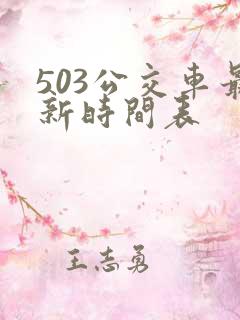 503公交車最
新時間表
王志勇